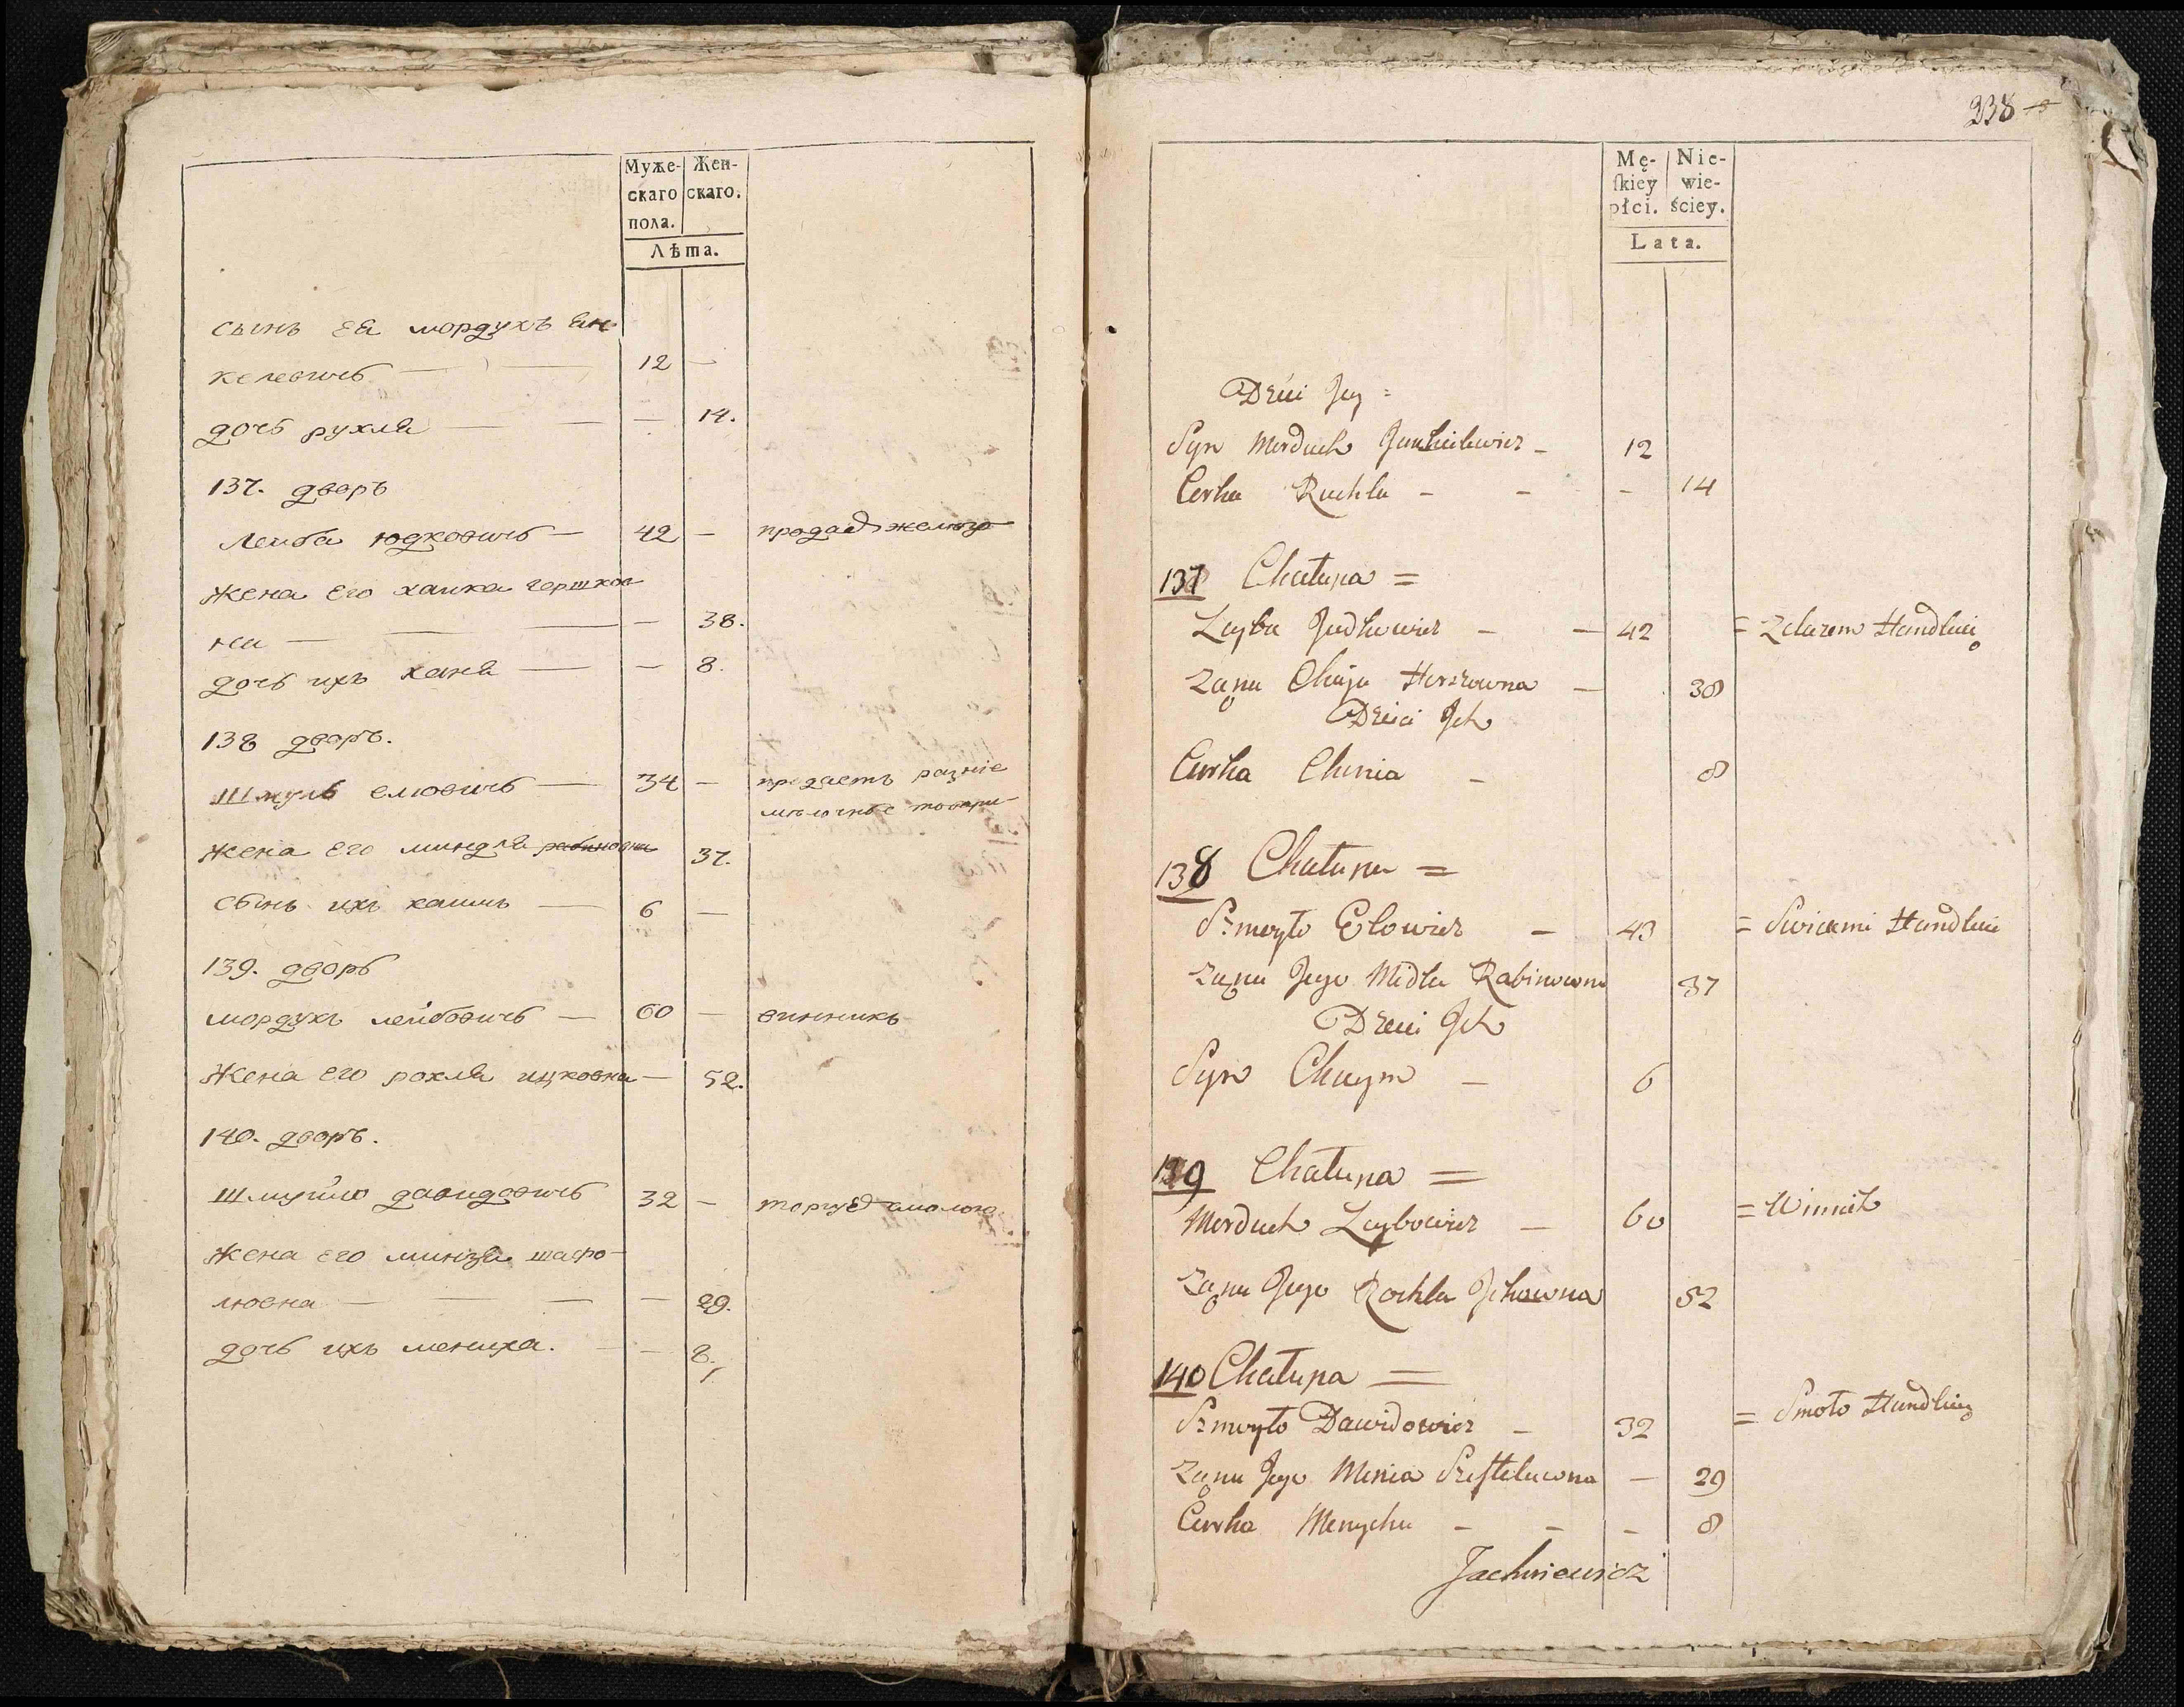 Муже-
скаго
пола.
Жен-
скаго.
Лѣта.
сынъ ея мордухъ ян
келевичъ — — 12 —
дочь рухля — — — 14.
137. дворъ
Лейба юдковичъ — 42 — продаетъ желѣзо
Жена его хайка гершков
на — — — — 38.
дочь ихъ ханя — — 8.
138 дворъ.
Шмуль елювичъ — 34 — продаетъ разніе
мѣлочные товари
Жена его миндля рабиновна 37.
сынъ ихъ хаимъ — 6 —
139. дворъ
мордухъ лейбовичъ — 60 — винникъ
Жена его рохля ицковна — 52.
140. дворъ.
Шмуйло давидовичъ 32 — торгуетъ смолою
Жена его минзя
— — — — 29.
дочь ихъ мениха. — — 8.
238
Mę-
ſkiey
płci.
Nie-
wie-
ściey.
Lata.
Dzieci Jey =
Syn Morduch Jankielewicz - 12
Corka Ruchla - - - 14
137 Chałupa =
Leyba Judkowicz - - 42 = Zelazem Handluią
Zona Chaja Herszowna - 38
Dzieci Jch
Corka Chinia - 8
138 Chałupa =
Szmoyło Elowicz - 43 = Swicami Handluie
Zona Jego Midla Rabinowna 37
Dzieci Jch
Syn Chaym - 6
139 Chałupa =
Morduch Leybowicz - 60 = Winnik
Zona Jego Rochla Jckowna 52
140 Chałupa =
Szmoyło Dawidowicz - 32 = Smoło Handluią
Zona Jego Minia Szeftelowna - 29
Corka Menycha - - - 8
Jachniewicz